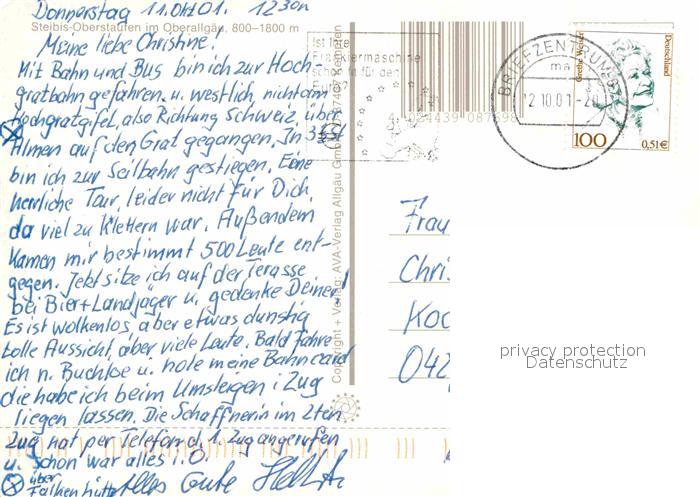 Donnerstag 11.Okt01. 1230h
Steibis-Oberstaufen im Oberallgäu, 800–1800 m
Meine liebe Christine!
Mit Bahn und Bus bin ich zur Hoch-
gratbahn gefahren u. westlich, nicht am
Hochgratgifel, also Richtung Schweiz, über
Almen auf den Grat gegangen. In 3 St
bin ich zur Seilbahn gestiegen. Eine
herrliche Tour, leider nicht für Dich,
da viel zu Klettern war. Außendem
Kamen mir bestimmt 500 Leute ent-
gegen. Jetzt sitze ich auf der Terasse
bei Bier + Landjäger u. gedenke Deiner!
Es ist wolkenlos, aber etwas dunstig
tolle Aussicht, aber viele Leute. Bald fahre
ich n. Buchloe u. hole meine Bahncard
die habe ich beim Umsteigen i Zug
liegen lassen. Die Schaffnerin im 2ten
Zug hat per Telefon d. 1. Zug angerufen
u. schon war alles i.O.
über
Falkenhütte
Alles Gute
Ist Ihre
Frankiermaschine
schon fit für den
Euro?
BRIEFZENTRUM 87
ma
12.10.01-20
Grethe Weiser
Deutschland
100
0,51€
4 034439 087698
Copyright + Verlag: AVA-Verlag Allgäu GmbH, 87437 Kempten
Frau
Chri
Koc
042
privacy protection
Datenschutz